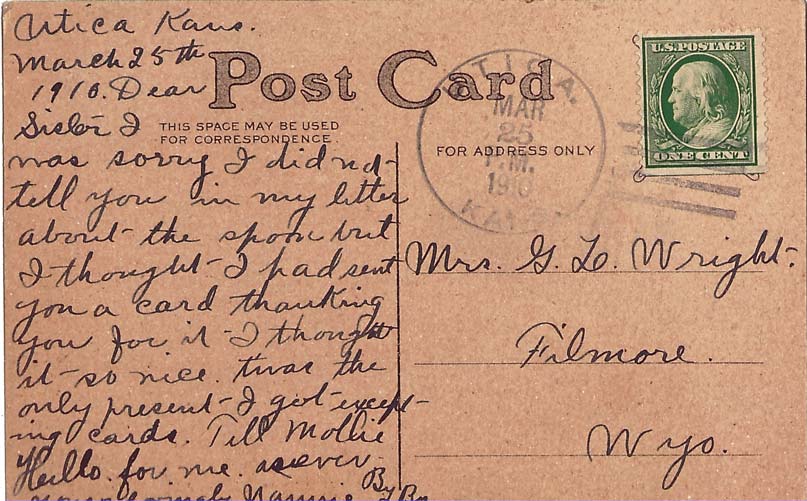 Utica Kans.
March 25th
1910. Dear
Sister I
was sorry I did not
tell you in my letter
about the spoon but
I thought I had sent
you a card thanking
you for it I thought
it so nice. twas the
only present I got except-
ing cards. Tell Mollie
Hello for me. as ever
By By
Post Card
THIS SPACE MAY BE USED
FOR CORRESPONDENCE.
FOR ADDRESS ONLY
UTICA.
MAR
25
P.M.
1910
KANS.
U.S. POSTAGE
ONE CENT
Mrs. G. L. Wright.
Filmore.
Wyo.